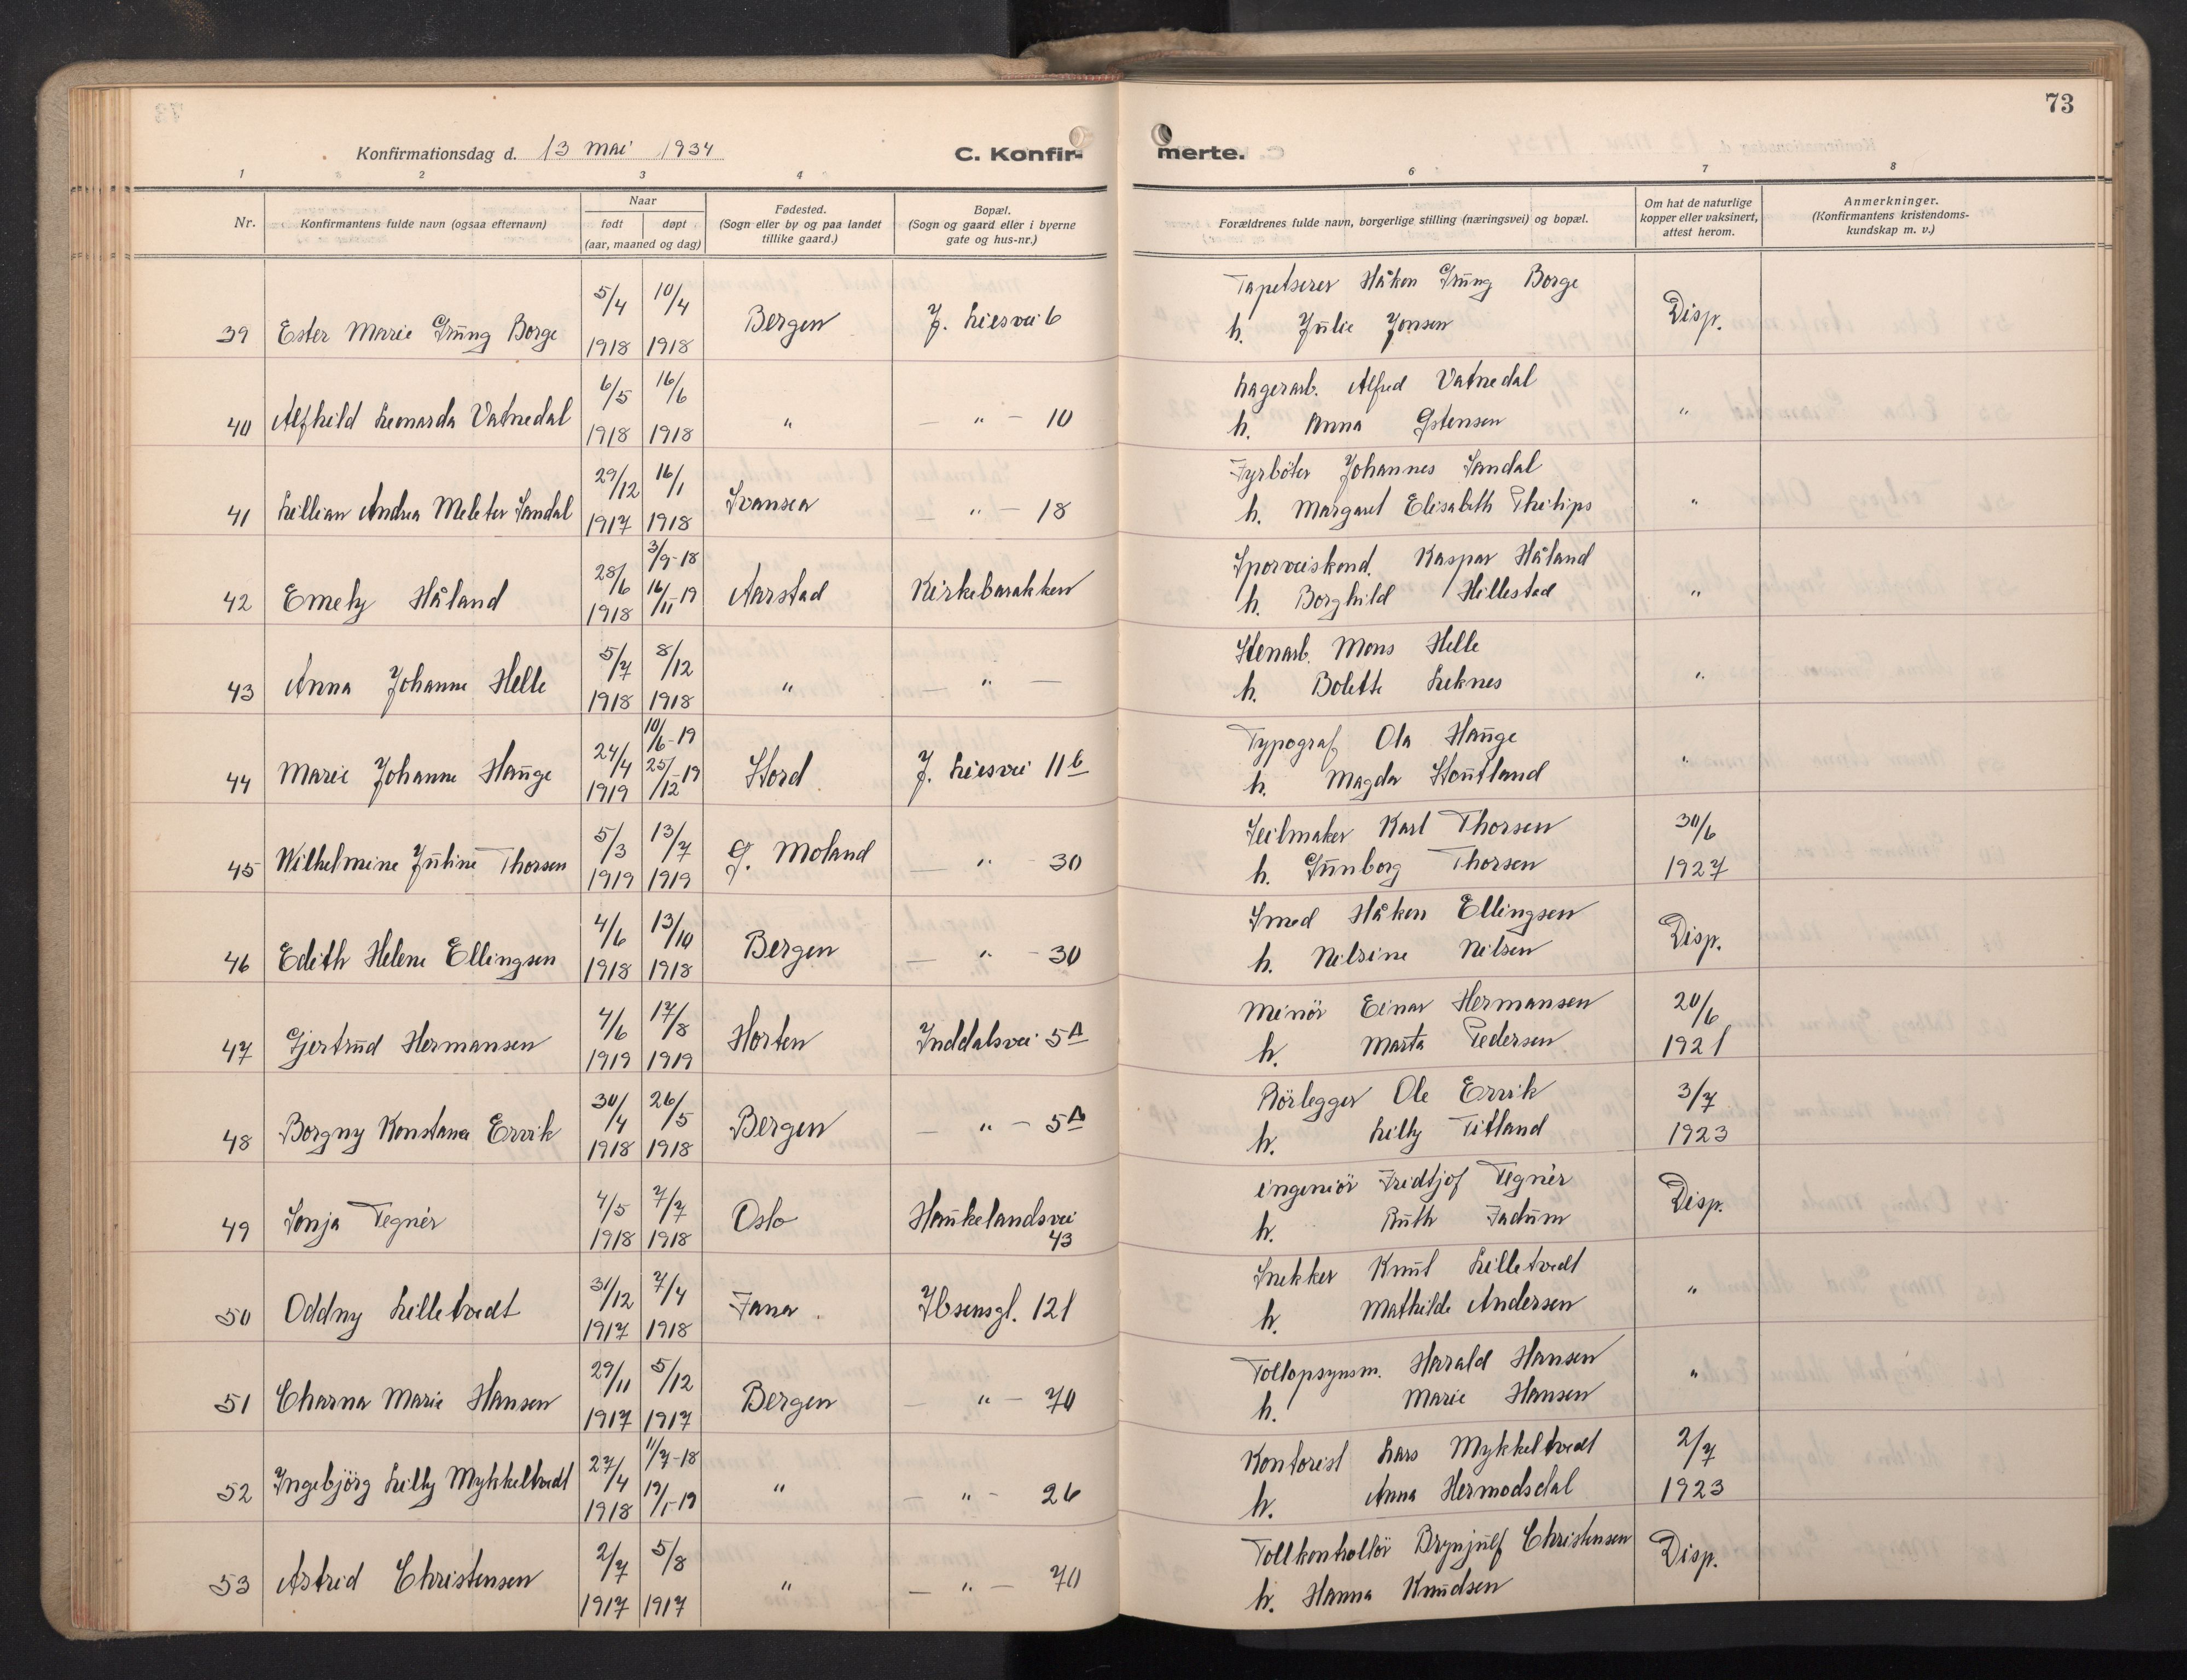 73
Konfirmationsdag d. 13 mai 1934
C. Konfir-
merte.
1 2 3 4 6 7 8
Nr.
Konfirmantens fulde navn (ogsaa efternavn)
Naar
født døpt
(aar, maaned og dag)
Fødested.
(Sogn eller by og paa landet
tillike gaard.)
Bopæl.
(Sogn og gaard eller i byerne
gate og hus-nr.)
Forældrenes fulde navn, borgerlige stilling (næringsvei) og bopæl.
Om hat de naturlige
kopper eller vaksinert,
attest herom.
Anmerkninger.
(Konfirmantens kristendoms-
kundskap m. v.)
5/4 10/4
39 Ester Marie Grung Borge Bergen J. Liesvei 6
1918 1918
Tapetserer Håkon Grung Borge
h. Julie Jonsen
Disp.
6/5 16/6
40 Alfhild Leonarda Vatnedal " — " — 10
1918 1918
Lagerarb. Alfred Vatnedal
h. Anna Gstensen
"
29/12 16/1
41 Lillian Andrea Meleter Sandal Svansea — " — 18
1917 1918
Fyrböter Johannes Sandal
h. Margaret Elisabeth Philips
"
28/6 3/9-18
42 Emely Håland Aarstad Kirkebarakken
1918 16/11-19
Sporveiskond. Kaspar Håland
h. Borghild Hillestad
"
5/7 8/12
43 Anna Johanne Helle " — " —
1918 1918
Stenarb. Mons Helle
h. Bolette Leknes
"
24/4 10/6-19
44 Marie Johanne Hauge Stord J. Liesvei 11 b
1919 25/12-19
Typograf Ola Hauge
h. Magda Stoutland
"
5/3 13/7
45 Wilhelmine Juline Thorsen G. Moland — " - 30
1919 1919
Seilmaker Karl Thorsen
h. Gunborg Thorsen
30/6
1927
4/6 13/10
46 Edith Helene Ellingsen Bergen — " - 30
1918 1918
Smed Håkon Ellingsen
h. Nilsine Nilsen
Disp.
4/6 17/8
47 Gjertrud Hermansen Horten Inddalsvei 5 A
1919 1919
Minör Einar Hermansen
h. Marta Pedersen
20/6
1921
30/4 26/5
48 Borgny Konstana Ervik Bergen — " — 5 A
1918 1918
Rörlegger Ole Ervik
h. Lilly Titland
3/7
1923
4/5 7/7
49 Sonja Tegnér Oslo Haukelandsvei
43
1918 1918
ingeniör Fridtjof Tegnér
h. Ruth Fadum
Disp.
31/12 7/4
50 Oddny Lilletvedt Fana Ibsensgt. 121
1917 1918
Snekker Knut Lilletvedt
h. Mathilde Andersen
"
29/11 5/12
51 Charna Marie Hansen Bergen — " — 70
1917 1917
Tollopsynsm. Harald Hansen
h. Marie Hansen
"
27/4 11/7-18
52 Ingebjörg Lilly Mykkeltvedt " — " - 26
1918 19/1-19
Kontorist Lars Mykkeltvedt
h. Anna Hermodsdal
2/7
1923
2/7 5/8
53 Astrid Christensen " — " — 70
1917 1917
Tollkontrollör Brynjulf Christensen
h. Hanna Knudsen
Disp.